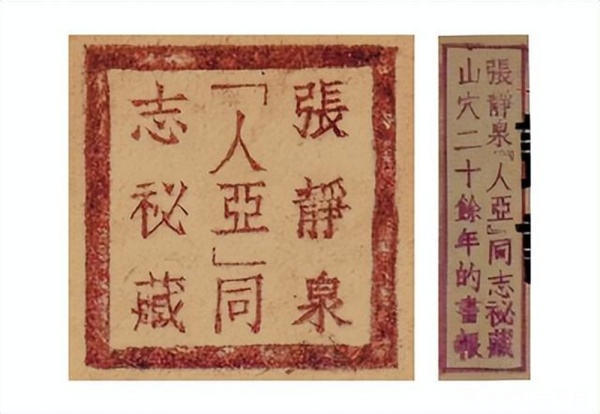 張靜泉
「人亞」同
志秘藏
張靜泉『人亞』同志秘藏
山穴二十餘年的書報